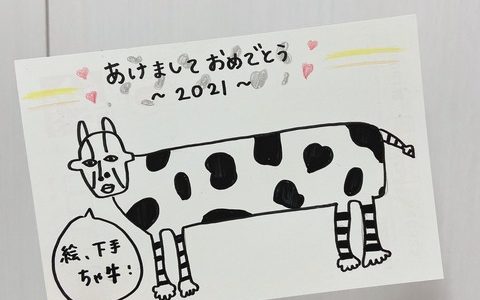 あけましておめでとう
～2021～
絵、下手
ちゃ牛！